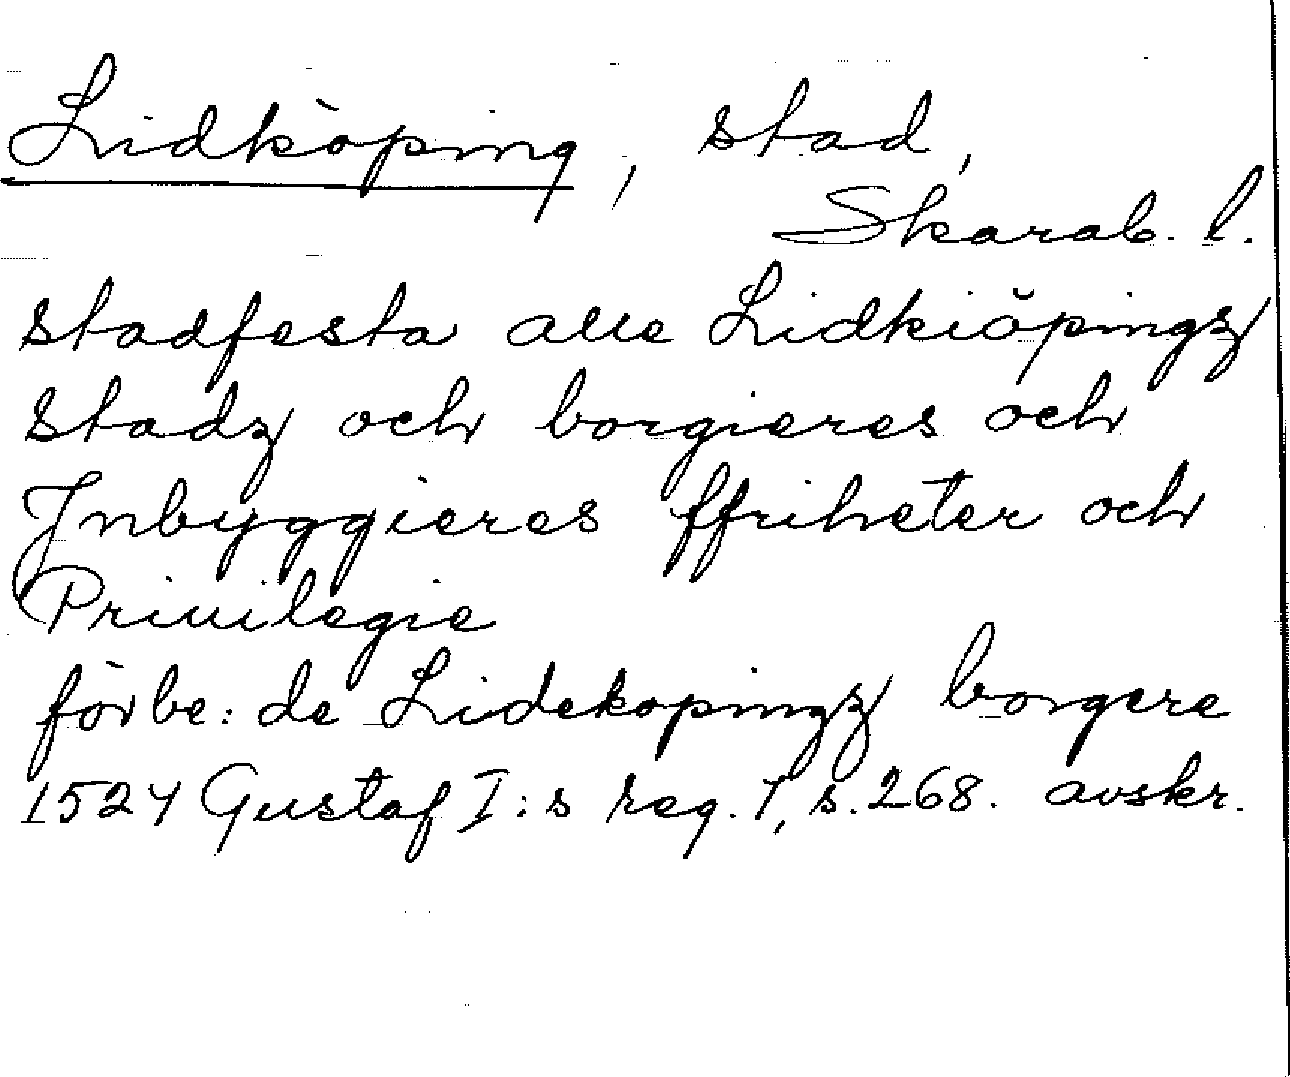 Lidköping, stad,
Skarab. l.
stadfesta alle Lidkiöpingz
stadz och borgieres och
Jnbyggieres ffriheter och
Priuilegie
förbe: de Lidekopingz borgere
1524 Gustaf I:s reg. 1, s. 268. avskr.